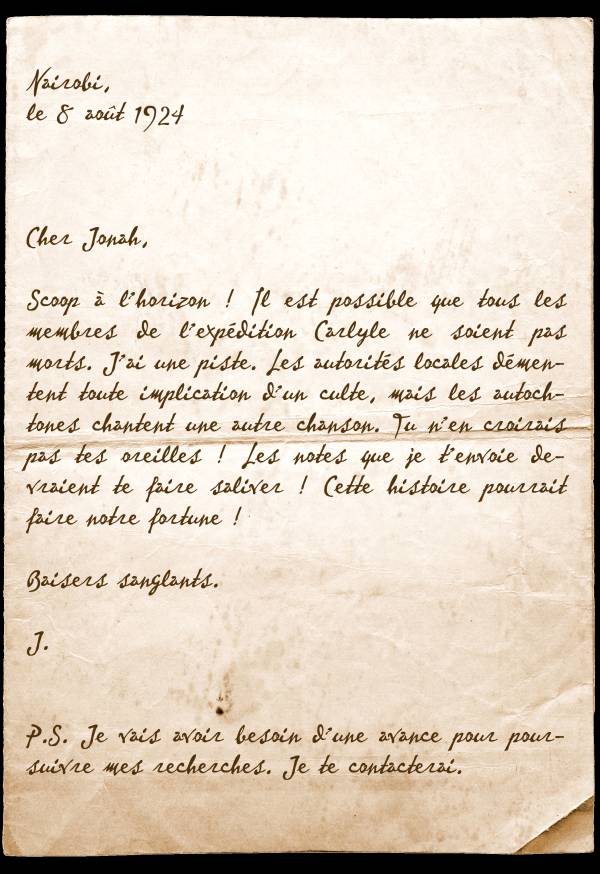 Nairobi,
le 8 août 1924
Cher Jonah,
Scoop à l'horizon ! Il est possible que tous les
membres de l'expédition Carlyle ne soient pas
morts. J'ai une piste. Les autorités locales démen-
tent toute implication d'un culte, mais les autoch-
tones chantent une autre chanson. Tu n'en croirais
pas tes oreilles ! Les notes que je t'envoie de-
vraient te faire saliver ! Cette histoire pourrait
faire notre fortune !
Baisers sanglants.
J.
P.S. Je vais avoir besoin d'une avance pour pour-
suivre mes recherches. Je te contacterai.